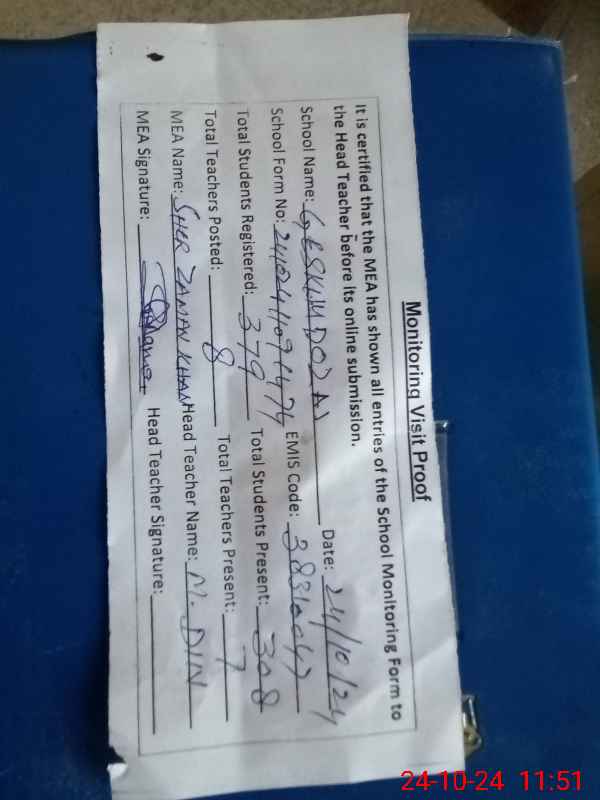 Monitoring Visit Proof
It is certified that the MEA has shown all entries of the School Monitoring Form to
the Head Teacher before its online submission.
School Name: Date: 24/10/24
School Form No: EMIS Code: 38310047
Total Students Registered: 379 Total Students Present: 308
Total Teachers Posted: 8 Total Teachers Present: 7
MEA Name: SHER ZAMAN KHAN Head Teacher Name: M. DIN
MEA Signature: Head Teacher Signature:
24-10-24 11:51